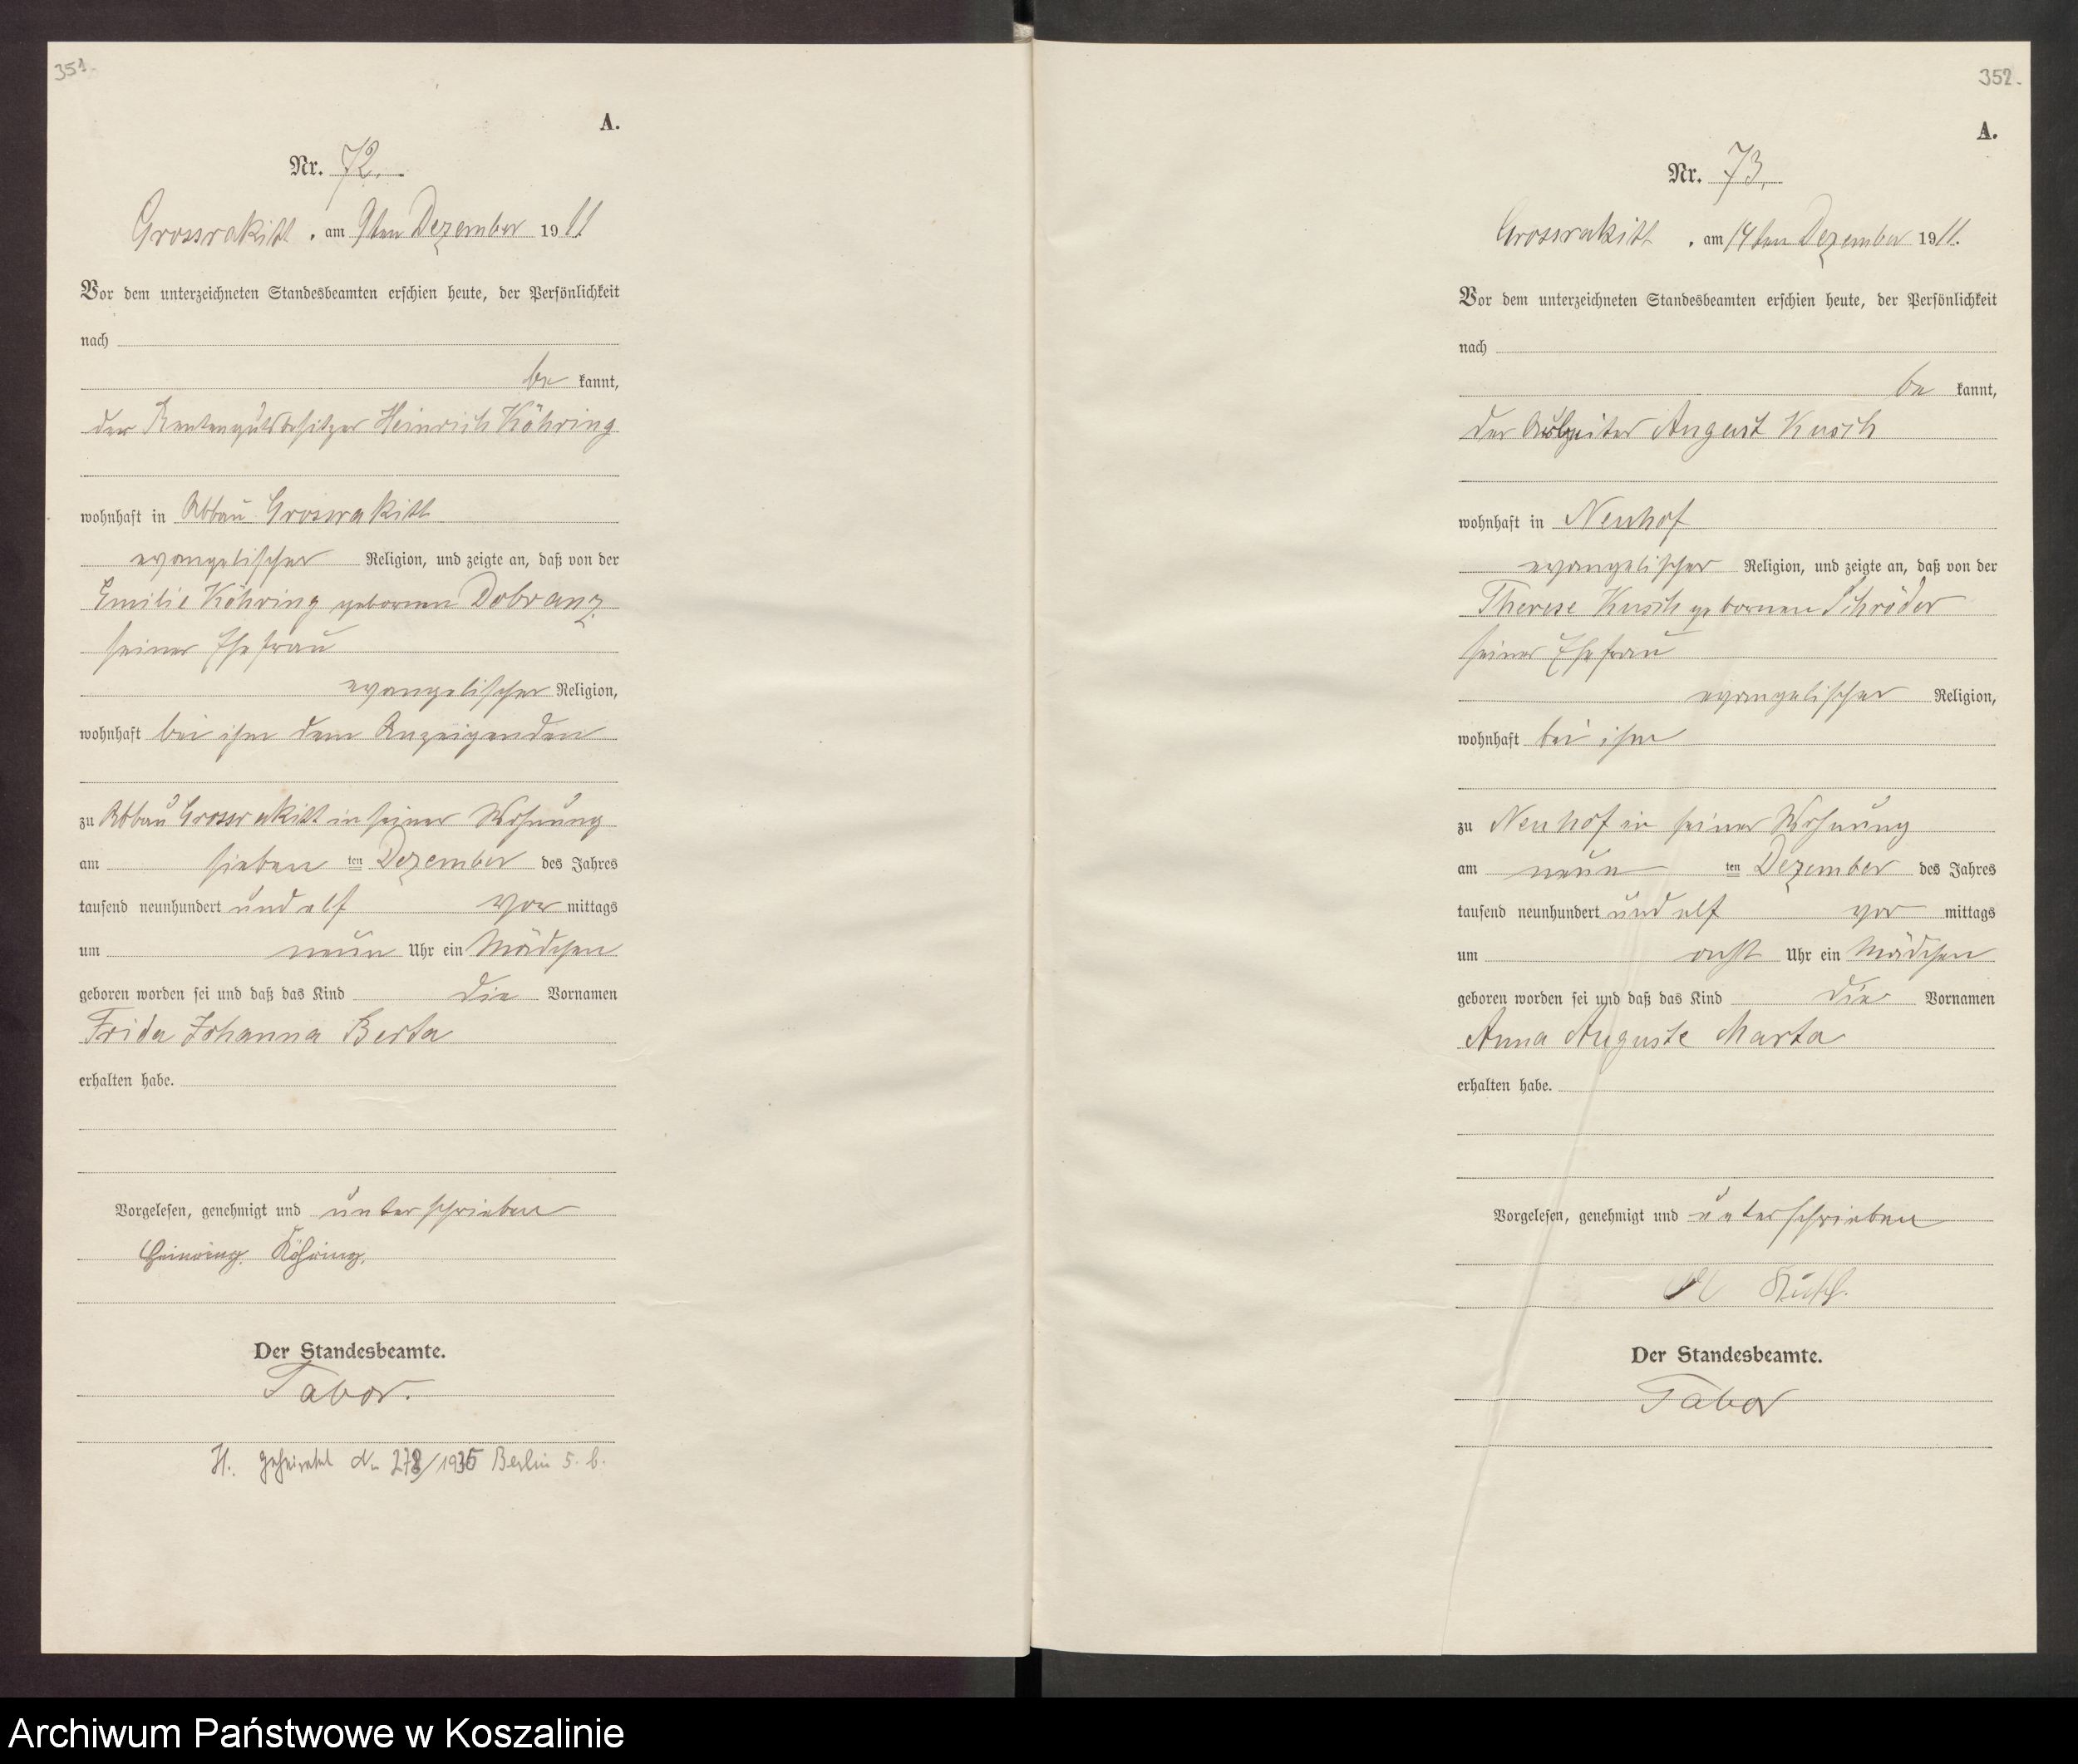 351.
A.
Nr. 72.
Grossrakitt, am 9ten Dezember 1911
Vor dem unterzeichneten Standesbeamten erschien heute, der Persönlichkeit
nach
be kannt,
der Rentengutsbesitzer Heinrich Köhring
wohnhaft in Abbau Grossrakitt
evangelischer Religion, und zeigte an, daß von der
Emilie Köhring geborenen Dobranz
seiner Ehefrau
evangelischer Religion,
wohnhaft bei ihm dem Anzeigenden
zu Abbau Grossrakitt in seiner Wohnung
am sieben ten Dezember des Jahres
tausend neunhundert und elf vor mittags
um neun Uhr ein Mädchen
geboren worden sei und daß das Kind die Vornamen
Frida Johanna Berta
erhalten habe.
Vorgelesen, genehmigt und unterschrieben
Köhring.
Der Standesbeamte.
Tabor.
H. geheiratet Nr. 278/1935 Berlin 5. b.
352.
A.
Nr. 73.
Grossrakitt, am 14ten Dezember 1911.
Vor dem unterzeichneten Standesbeamten erschien heute, der Persönlichkeit
nach
be kannt,
der Arbeiter August Kusch
wohnhaft in Neuhof
evangelischer Religion, und zeigte an, daß von der
Therese Kusch geborenen Schröder
seiner Ehefrau
evangelischer Religion,
wohnhaft bei ihm
zu Neuhof in seiner Wohnung
am neun ten Dezember des Jahres
tausend neunhundert und elf vor mittags
um acht Uhr ein Mädchen
geboren worden sei und daß das Kind die Vornamen
Anna Auguste Marta
erhalten habe.
Vorgelesen, genehmigt und unterschrieben
A Kusch.
Der Standesbeamte.
Tabor
Archiwum Państwowe w Koszalinie